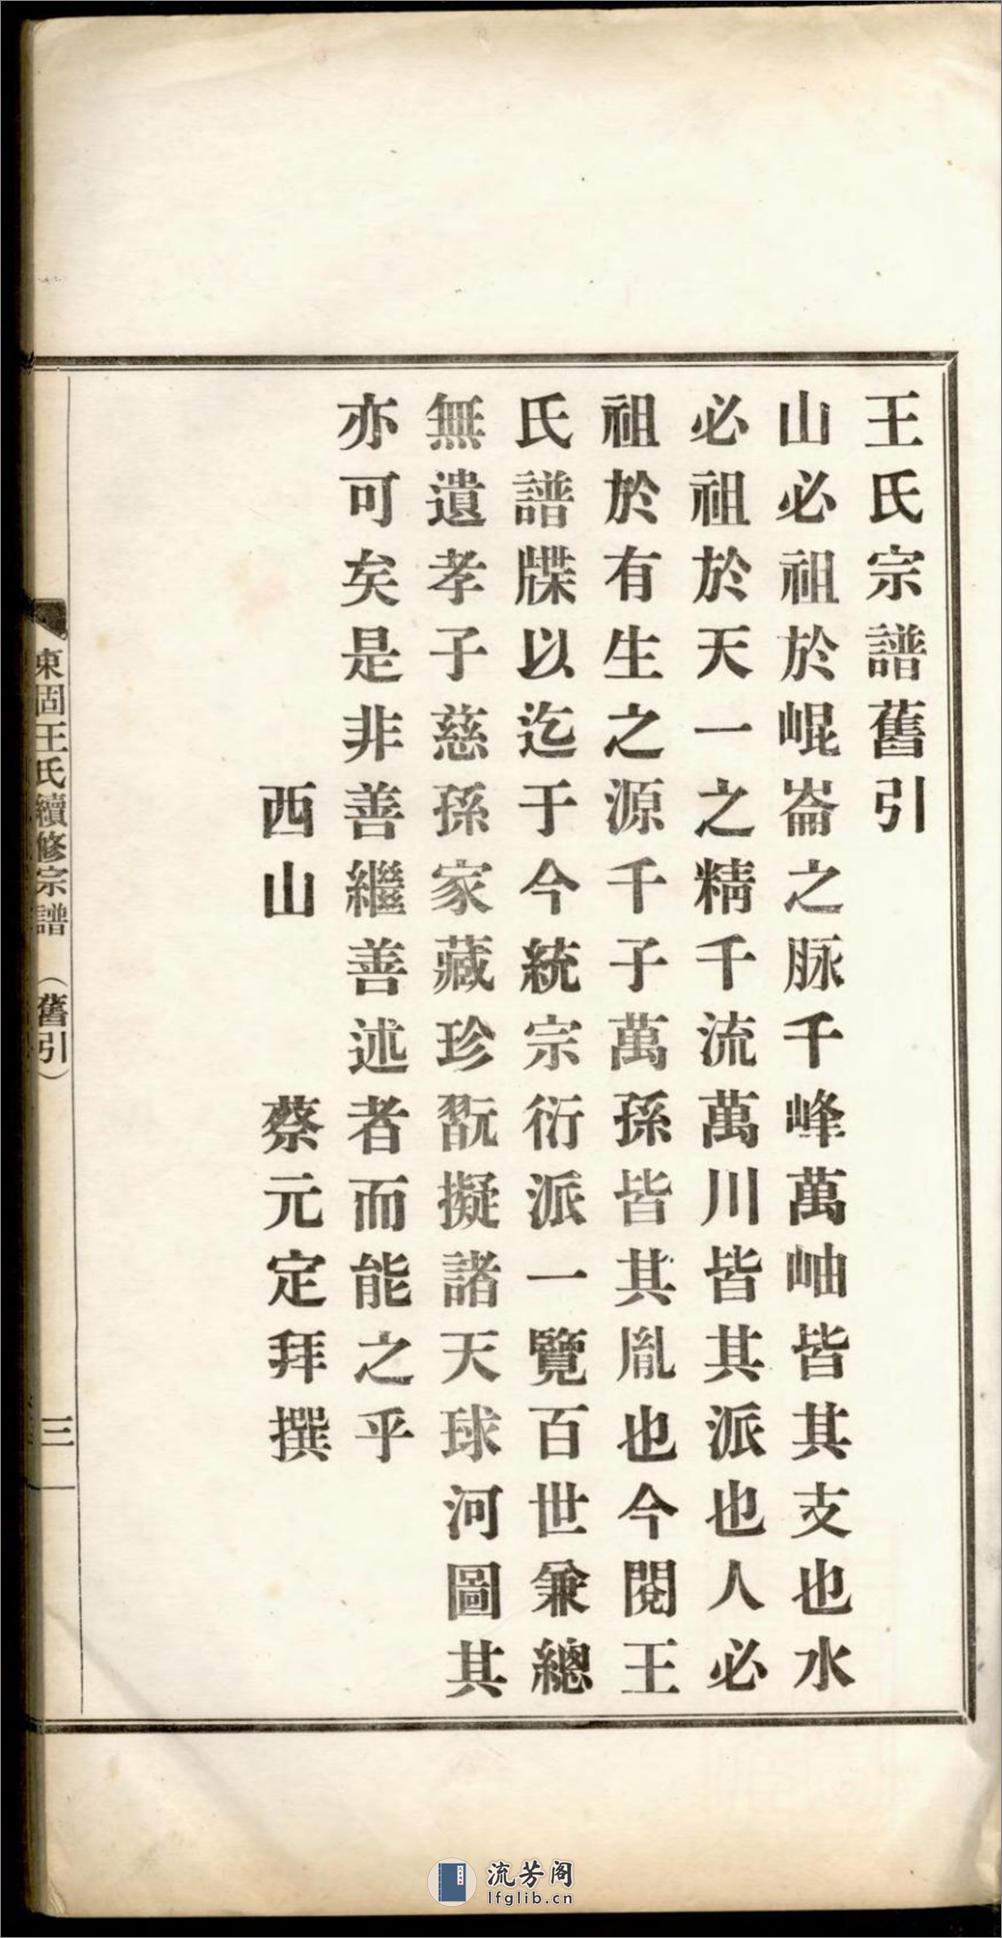 王氏宗譜舊引
山必祖於崐崙之脉千峰萬岫皆其支也水
必祖於天一之精千流萬川皆其派也人必
祖於有生之源千子萬孫皆其胤也今閱王
氏譜牒以迄于今統宗衍派一覽百世兼總
無遺孝子慈孫家藏珍翫擬諸天球河圖其
亦可矣是非善繼善述者而能之乎
西山 蔡元定拜撰
東固王氏續修宗譜 (舊引) 三
流芳阁
lfglib.cn